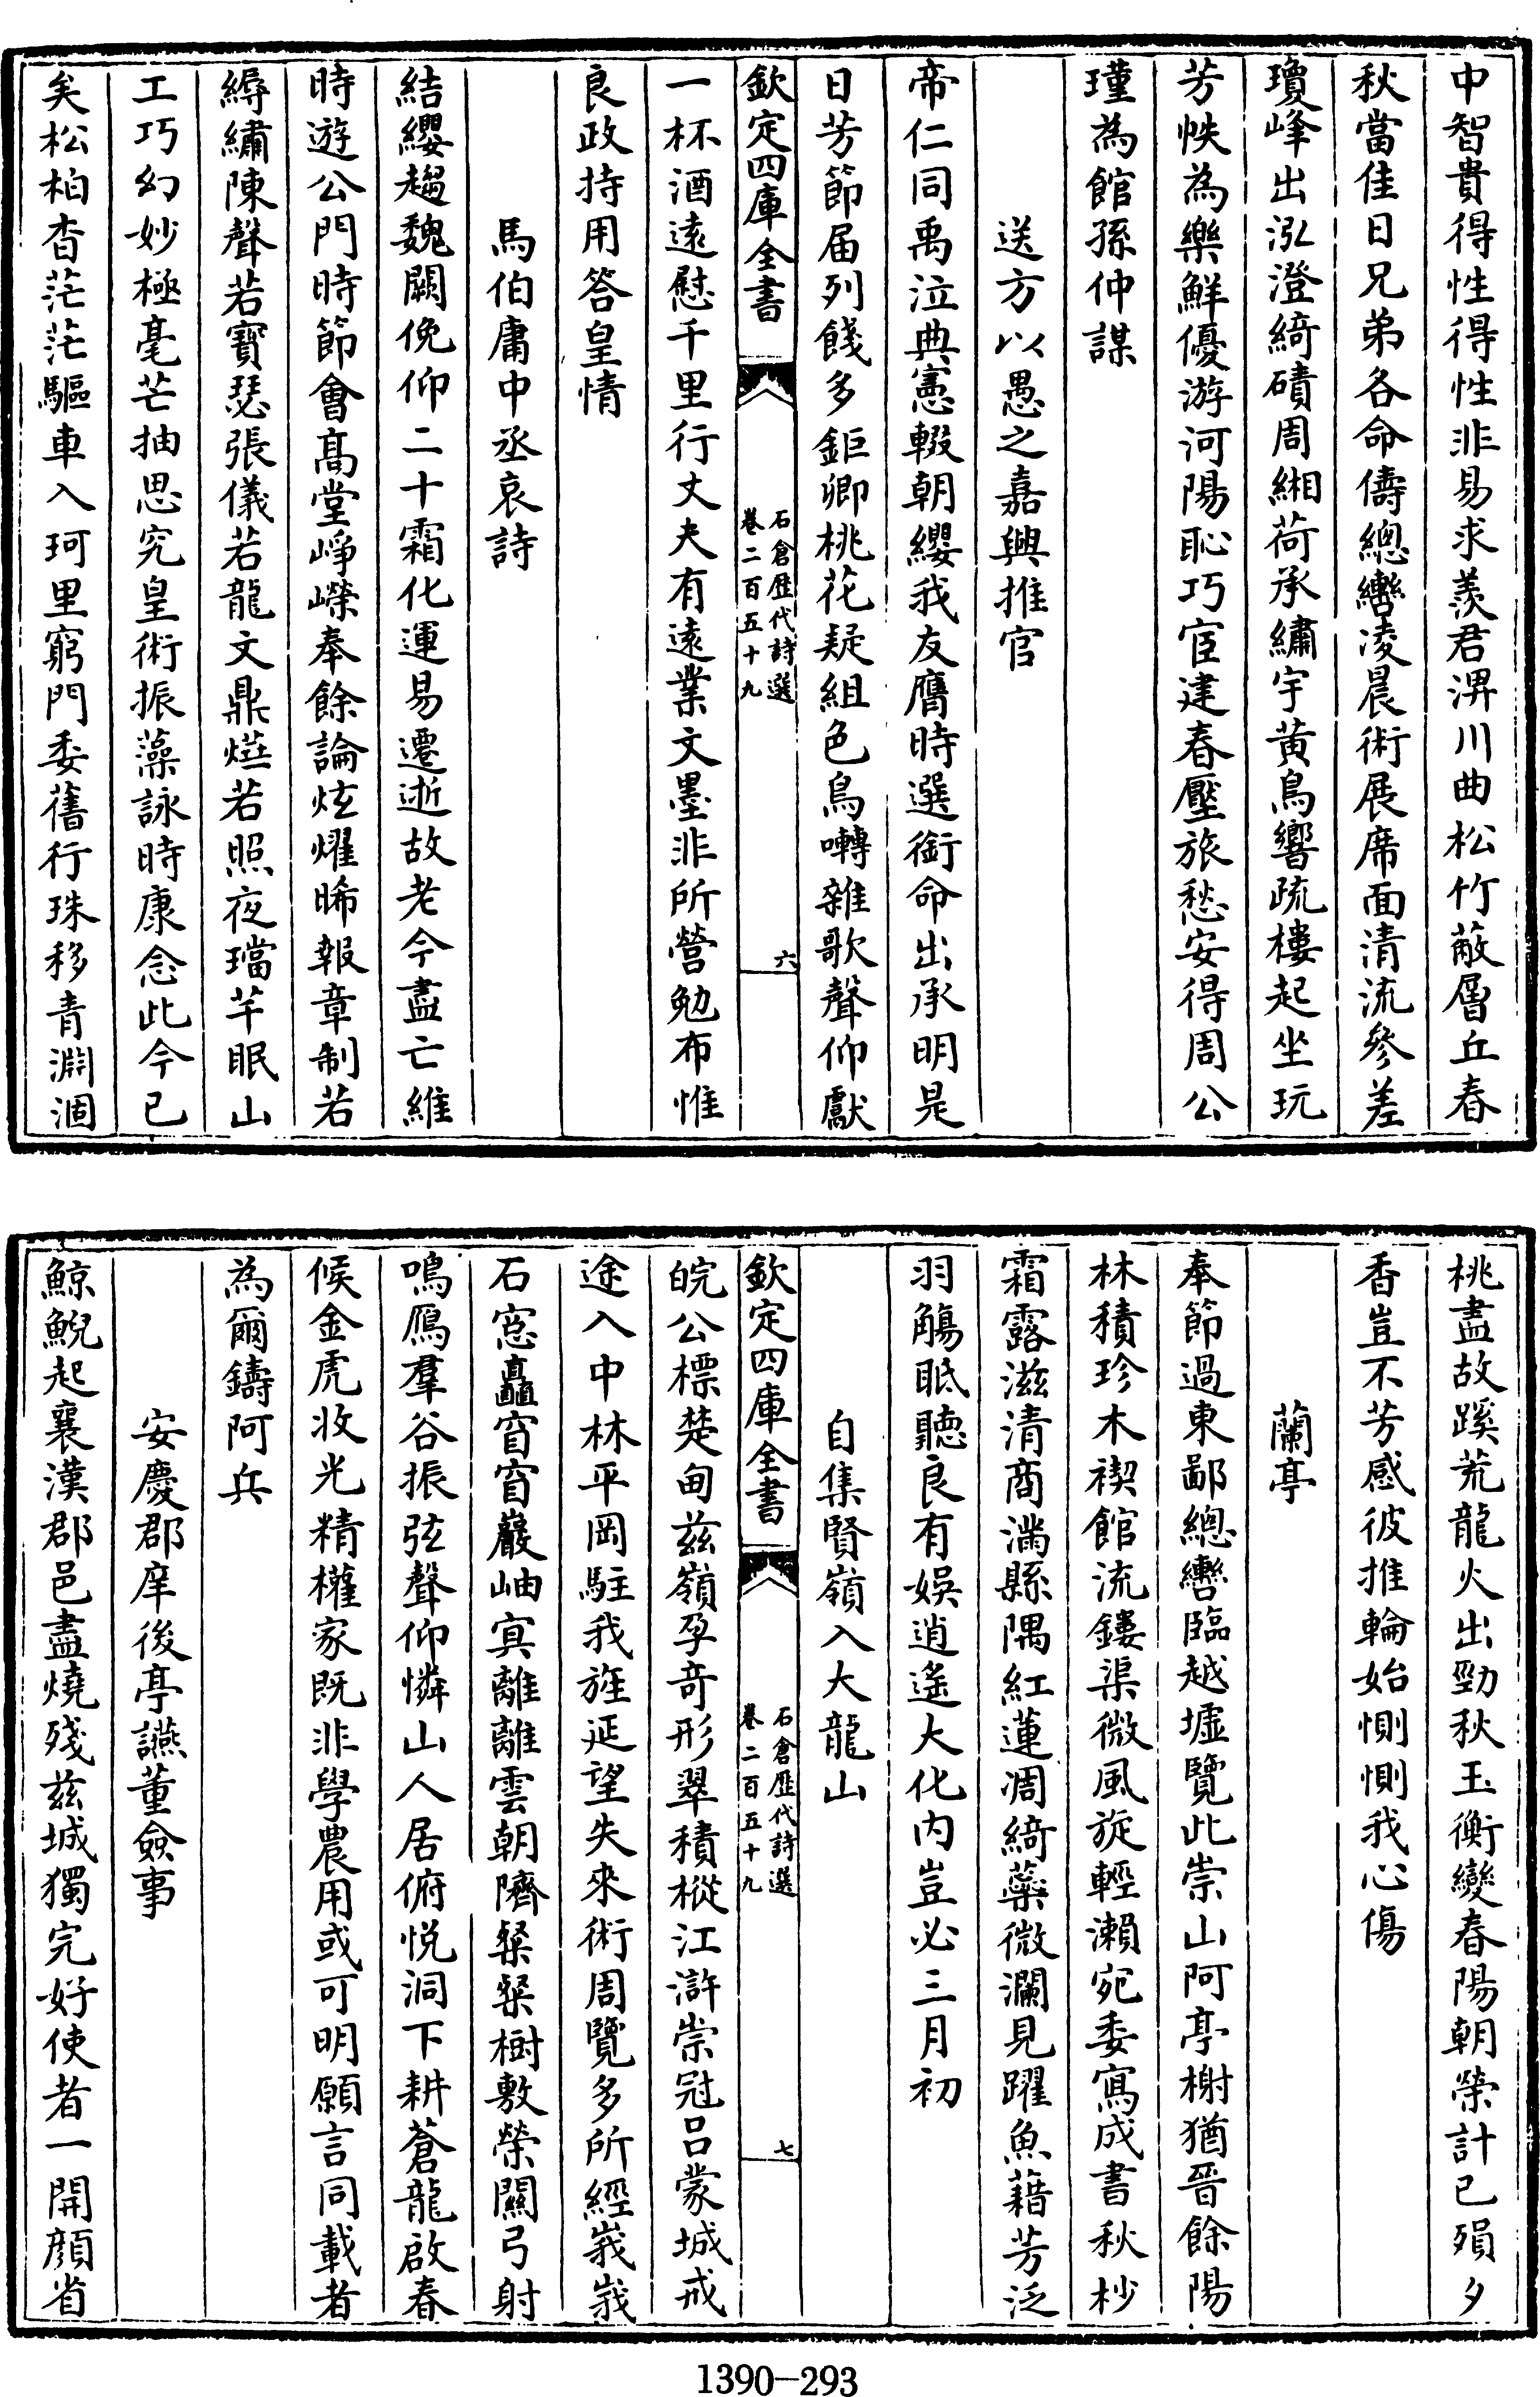 中智貴得性得性非易求羨君淠川曲松竹蔽層丘春
秋當佳日兄弟各命儔總轡凌晨術展席面清流參差
瓊峰出泓澄綺磧周緗荷承繡宇黄鳥響疏樓起坐玩
芳帙為樂鮮優游河陽恥巧宦建春壓旅愁安得周公
瑾為館孫仲謀
送方以愚之嘉興推官
帝仁同禹泣典憲輟朝纓我友膺時選銜命出承明是
日芳節届列餞多鉅卿桃花疑組色鳥囀雜歌聲仰獻
欽定四庫全書
石倉歷代詩選
卷二百五十九
六
一杯酒遠慰千里行丈夫有遠業文墨非所營勉布惟
良政持用答皇情
馬伯庸中丞哀詩
結纓趨魏闕俛仰二十霜化運易遷逝故老今盡亡維
時遊公門時節會髙堂崢嶸奉餘論炫燿晞報章制若
縟繡陳聲若寳瑟張儀若龍文鼎燄若照夜璫芊眠山
工巧幻妙極毫芒抽思究皇術振藻詠時康念此今已
矣松柏杳茫茫驅車入珂里窮門委舊行珠移青淵涸
桃盡故蹊荒龍火出勁秋玉衡變春陽朝榮計已殞夕
香豈不芳感彼推輪始惻惻我心傷
蘭亭
奉節過東鄙總轡臨越墟覽此崇山阿亭榭猶晉餘陽
林積珍木禊館流鏤渠微風旋輕瀨宛委寫成書秋杪
霜露滋清商滿縣隅紅蓮凋綺蘂微瀾見躍魚藉芳泛
羽觴眂聽良有娱逍遙大化内豈必三月初
自集賢嶺入大龍山
欽定四庫全書
石倉歷代詩選
卷二百五十九
七
皖公標楚甸兹嶺孕竒形翠積樅江滸崇冠吕蒙城戒
途入中林平岡駐我旌延望失來術周覽多所經峩峩
石窓矗窅窅巖岫㝠離離雲朝隮粲粲樹敷榮關弓射
鳴鴈羣谷振弦聲仰憐山人居俯悦洞下耕蒼龍啟春
候金虎收光精權家既非學農用或可明願言同載者
為爾鑄阿兵
安慶郡庠後亭讌董僉事
鯨鯢起襄漢郡邑盡燒殘兹城獨完好使者一開顔省
1390-293